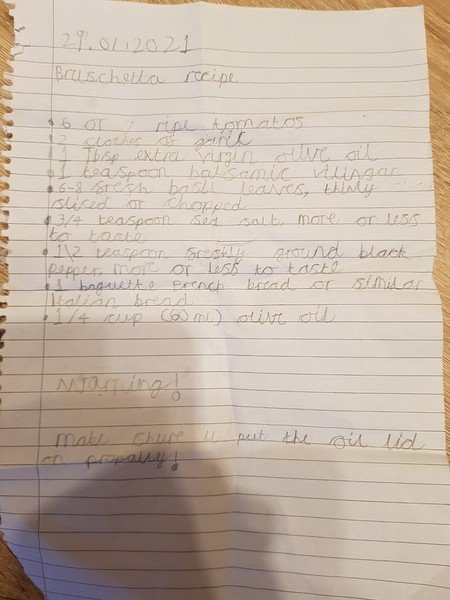 29.01.2021
Bruschetta recipe.
• 6 or 7 ripe tomatos
• 2 cloths of garlic
• 1 Tbsp extra virgin olive oil
• 1 teaspoon balsamic
• 6-8 fresh basil leaves, thinly
sliced or chopped
• 3/4 teaspoon sea salt, more or less
to taste
• 1\2 teaspoon freshly ground black
pepper, more or less to taste
• 1 baguette French bread or similar
Italian bread.
• 1/4 cup (60 ml) olive oil
Warning!
Make shure u put the oil lid
on propally!